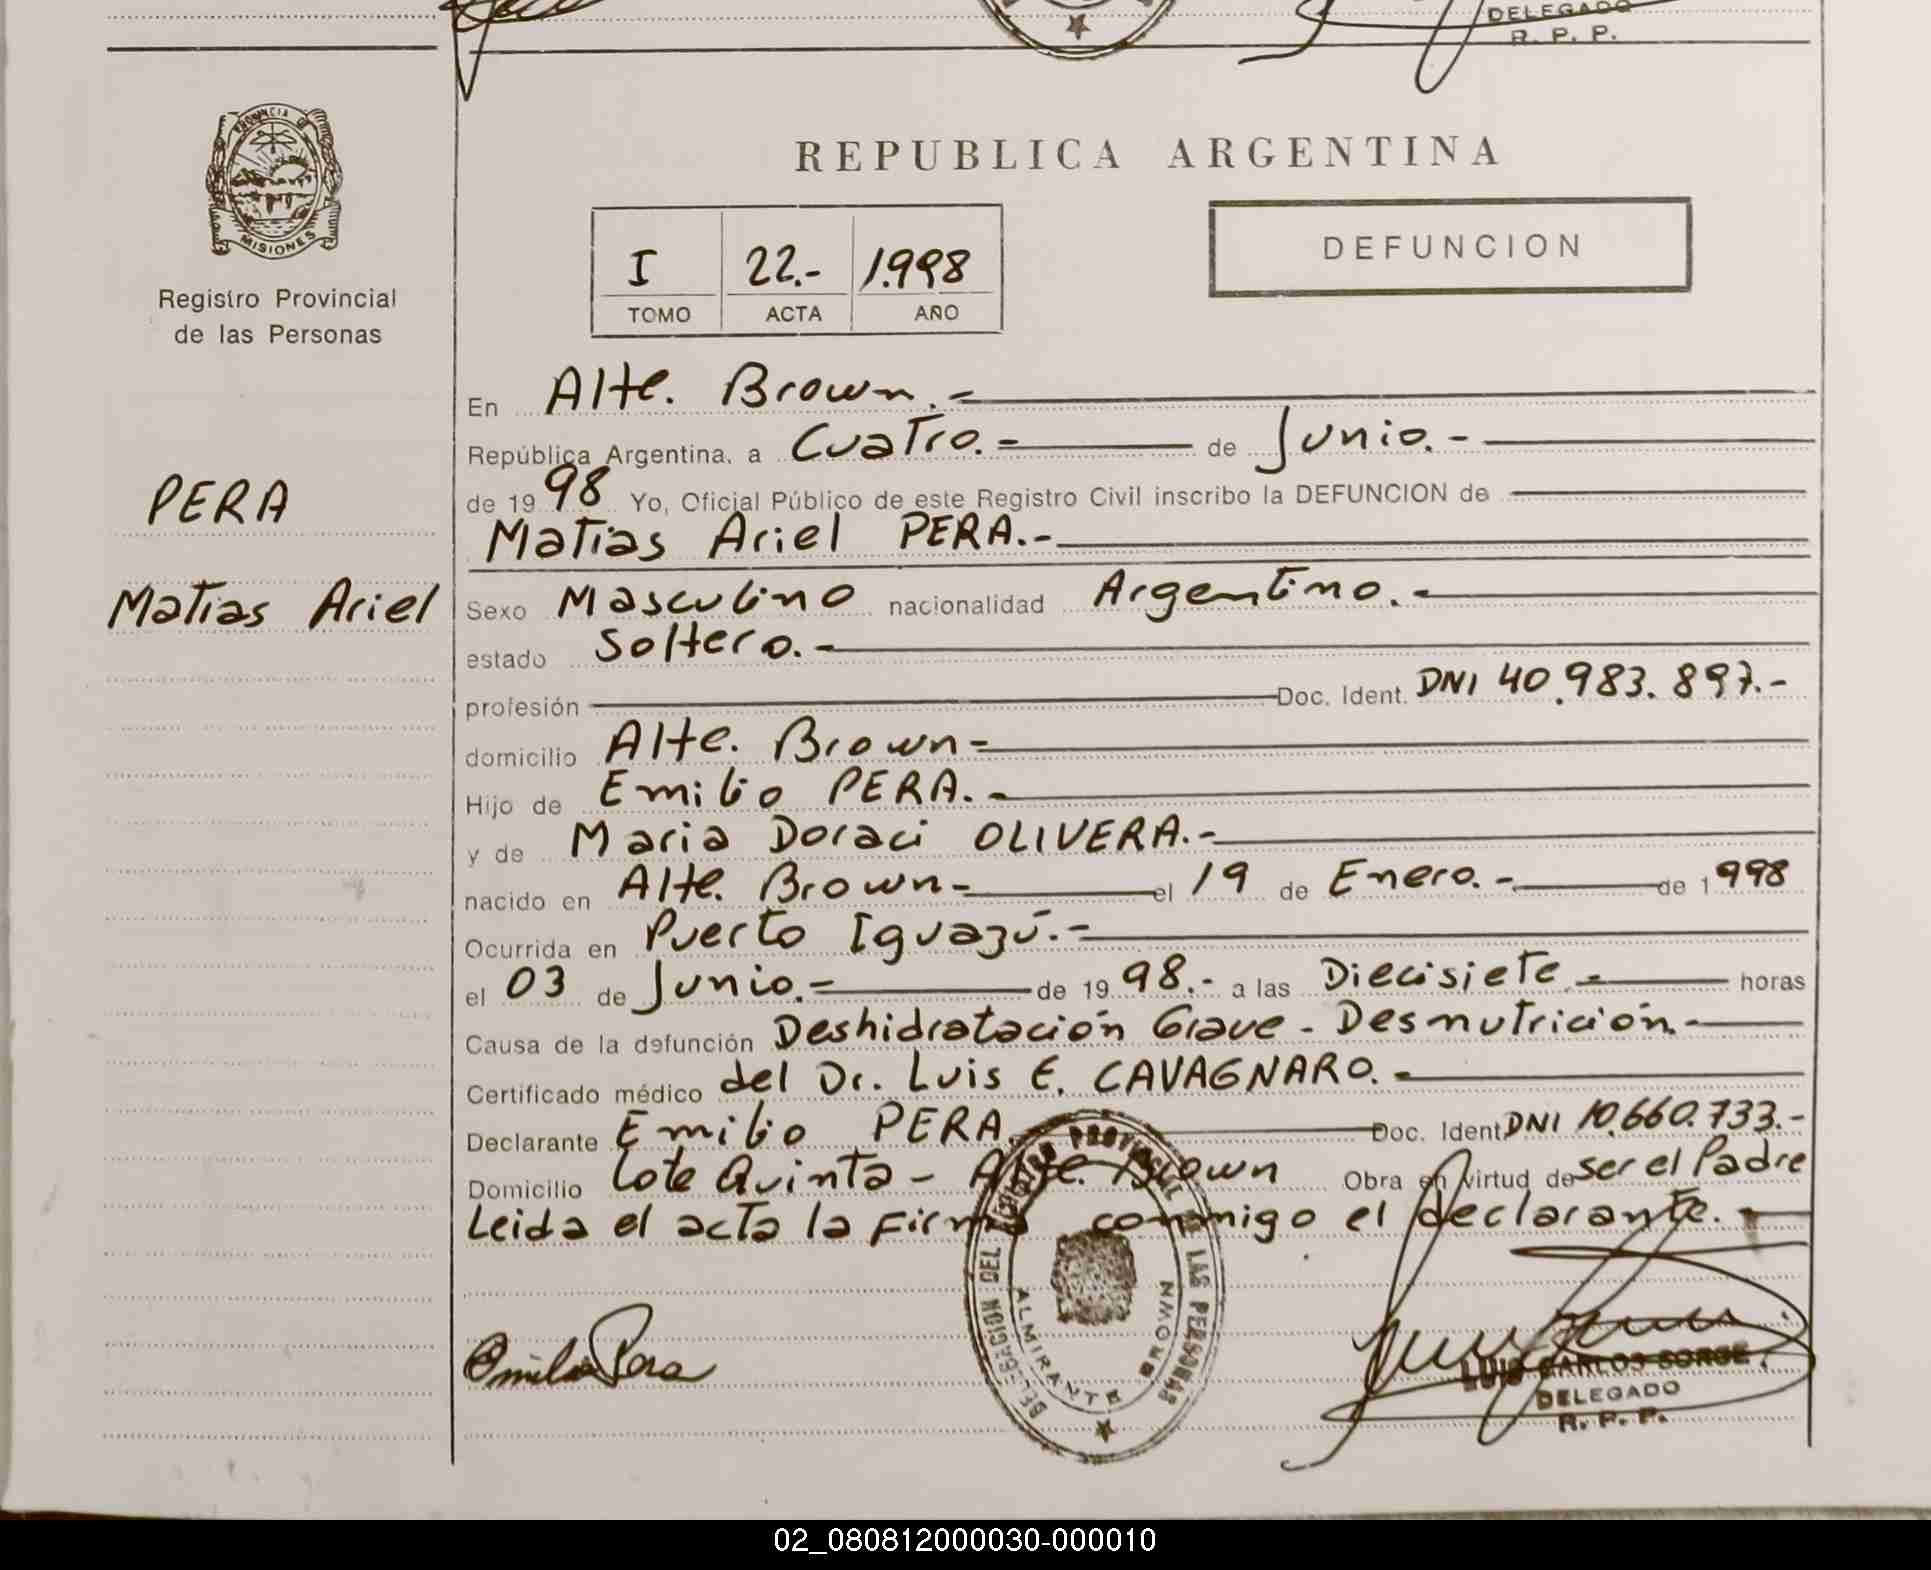 DELEGADO
R. P. P.
PROVINCIA DE
MISIONES
Registro Provincial
de las Personas
REPUBLICA ARGENTINA
I 22.- 1.998
TOMO ACTA AÑO
DEFUNCION
PERA
Matias Ariel
En Alte. Brown.-
República Argentina, a Cuatro.- de Junio.-
de 1998 Yo, Oficial Público de este Registro Civil inscribo la DEFUNCION de
Matias Ariel PERA.-
Sexo Masculino nacionalidad Argentino.-
estado Soltero.-
profesión Doc. Ident. DNI 40.983.897.-
domicilio Alte. Brown-
Hijo de Emilio PERA.-
y de Maria Doraci OLIVERA.-
nacido en Alte. Brown- el 19 de Enero.- de 1998
Ocurrida en Puerto Iguazú.-
el 03 de Junio.- de 1998.- a las Diecisiete.- horas
Causa de la defunción Deshidratación Grave - Desnutrición.-
Certificado médico del Dr. Luis E. CAVAGNARO.-
Declarante Emilio PERA. Doc. Ident. DNI 10.660.733.-
Domicilio Lote Quinta - Alte. Brown Obra en virtud de ser el Padre
Leida el acta la firma conmigo el declarante.-
DELEGACION DEL REGISTRO PROVINCIAL DE LAS PERSONAS
ALMIRANTE BROWN
Emilio Pera
LUIS CARLOS SORGE
DELEGADO
R. P. P.
02_080812000030-000010